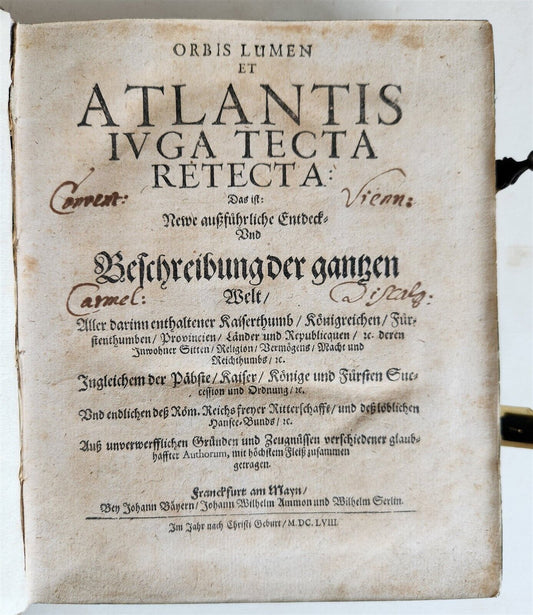 ORBIS LUMEN
ET
ATLANTIS
IVGA TECTA
RETECTA:
Convent: Vienn:
Das ist:
Newe außführliche Entdeck-
Vnd
Beschreibung der gantzen
Carmel: Discalg:
Welt/
Aller darinn enthaltener Kaiserthumb/ Königreichen/ Für-
stenthumben/ Provincien/ Länder und Republicquen/ ꝛc. deren
Inwohner Sitten/ Religion/ Vermögens/ Macht und
Reichthumbs/ ꝛc.
Ingleichem der Päbste/ Kaiser/ Könige und Fürsten Suc-
cession und Ordnung/ ꝛc.
Vnd endlichen deß Röm. Reichs freyer Ritterschafft/ und deß löblichen
Hansee-Bunds/ ꝛc.
Auß unverwerfflichen Gründen und Zeugnüssen verschiedener glaub-
haffter Authorum, mit höchstem Fleiß zusammen
getragen.
Franckfurt am Mayn/
Bey Johann Bäyern/ Johann Wilhelm Ammon und Wilhelm Serlin.
Im Jahr nach Christi Geburt/ M. DC. LVIII.